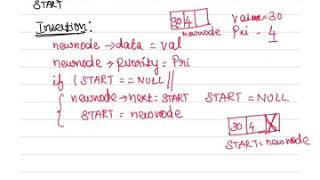 START
Insertion:
30 4
newnode
value = 30
Pri - 4
newnode → data = val
newnode → priority = Pri
if (START == NULL ||
{ newnode → next = START START = NULL
START = newnode
30 4 X
START = newnode